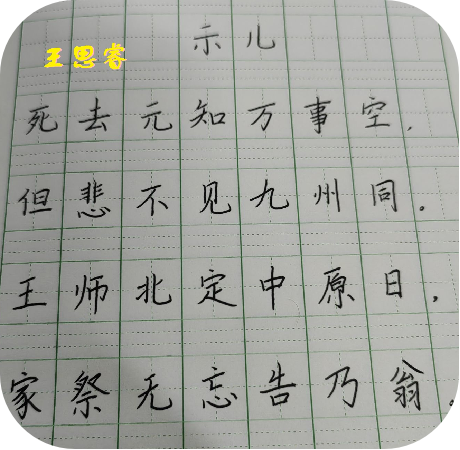 示儿
王思睿
死去元知万事空，
但悲不见九州同。
王师北定中原日，
家祭无忘告乃翁。